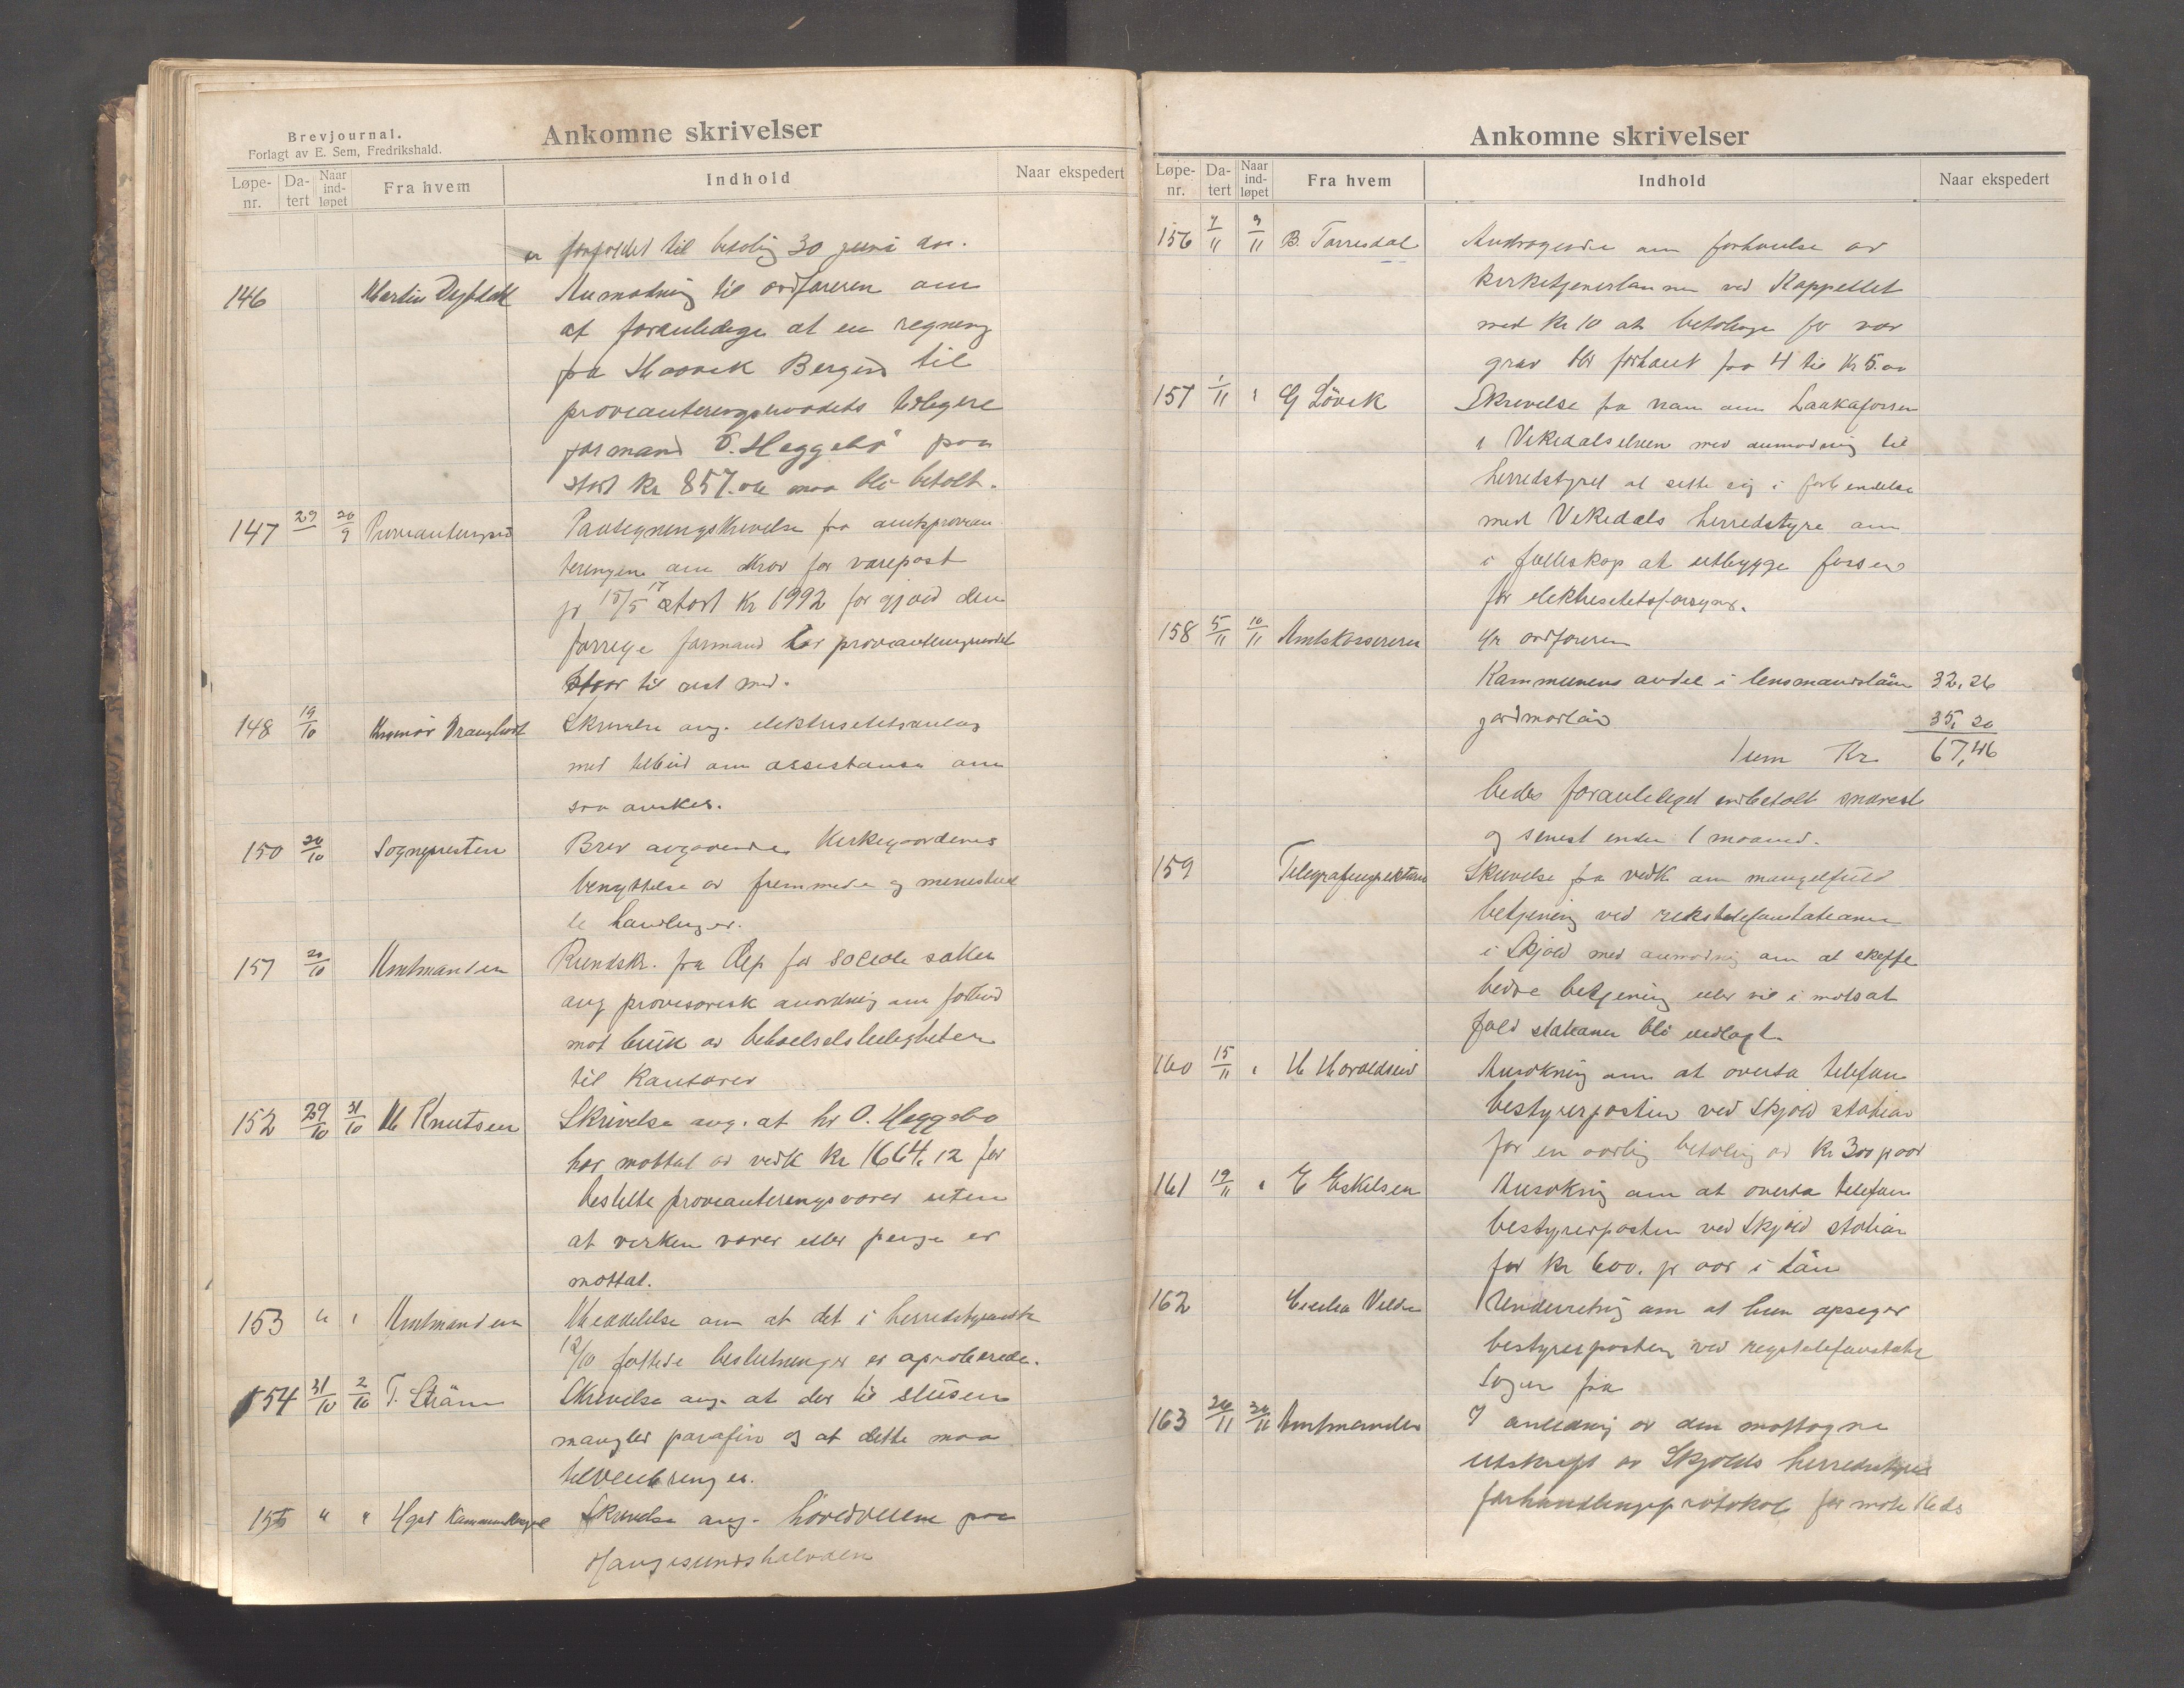 Brevjournal.
Forlagt av E. Sem, Fredrikshald.
Ankomne skrivelser
Løpe-nr. Da-tert Naar ind-løpet Fra hvem Indhold Naar ekspedert
er forfaldt til betaling 30 juni
146 Martin Anmodning til ordføreren om
at foranledige at en regning
fra Haavik Bergen til
provianteringsraadets tidligere
formand O. Heggebö paa
stort kr 857. maa bli betalt.
147 29 20/9 Provianteringsraad Paategningskrivelse fra amtsprovian
teringen om krav for varepost
pr 15/5 17 stort kr 1992 for gjæld den
forrige formand for provianteringsraadet
staar til rest med.
148 19/10 Skrivelse ang. elektrisitetsanlæg
med tilbud om assistanse om
saa ønskes.
150 20/10 Sognepresten Brev angaaende Kirkegaardenes
benyttelse av fremmede og ministriel
le handlinger.
151 20/10 Amtmanden Rundskr. fra Dep for sociale saker
ang provisorisk anordning om forbud
mot bruk av beboelsesleiligheter
til Kontorer
152 29/10 31/10 M Knutsen Skrivelse ang. at hr O. Heggebø
har mottat av vedk kr 1664.12 for
bestilte provianteringsvarer uten
at virken varer eller penge er
mottat.
153 " " Amtmanden Meddelelse om at det i herredstyremøte
12/10 fattede beslutninger er aproberede.
154 31/10 2/10 T. Skrivelse ang. at der til slusen
mangler parafin og at dette maa
tilveiebringes.
155 " " Skrivelse ang. hovedveiene paa
Haugesundshalvøen
Ankomne skrivelser
Løpe-nr. Da-tert Naar ind-løpet Fra hvem Indhold Naar ekspedert
156 7/11 9/11 B. Torresdal Andragende om forhøielse av
kirketjenerlønnen ved Kappellet
med kr 10 at betalingen for vær
grav blir forhøiet fra 4 til kr 5.00
157 1/11 " G Lövik Skrivelse fra ham om Laakafossen
i Vikedalselven med anmodning til
herredstyret at sette sig i forbindelse
med Vikedals herredstyre om
i fælleskap at utbygge fossen
for elektrisitetsforsyn.
158 5/11 10/11 Amtskassereren ordføreren
Kommunens andel i lensmandslön 32,26
jordmorlön 35,20
Sum Kr 67,46
bedes foranlediget indbetalt snarest
og senest inden 1 maaned.
159 Telegrafinspektøren Skrivelse fra vedk om mangelfuld
betjening ved rikstelefonstationen
i Skjold med anmodning om at skaffe
bedre betjening eller vil i motsat
fald stationen bli nedlagt.
160 15/11 " H Haraldseid Ansøkning om at overta telefon
bestyrerposten ved Skjold station
for en aarlig betaling av kr 300 pr aar
161 19/11 " E Eskilsen Ansøkning om at overta telefon
bestyrerposten ved Skjold station
for kr 600. pr aar i lön
162 Underretning om at hun opsiger
bestyrerposten ved rigstelefonstati

163 26/11 Amtmanden I anledning av den mottagne
utskrift av Skjolds herredstyres
forhandlingsprotokol for møte 16 ds